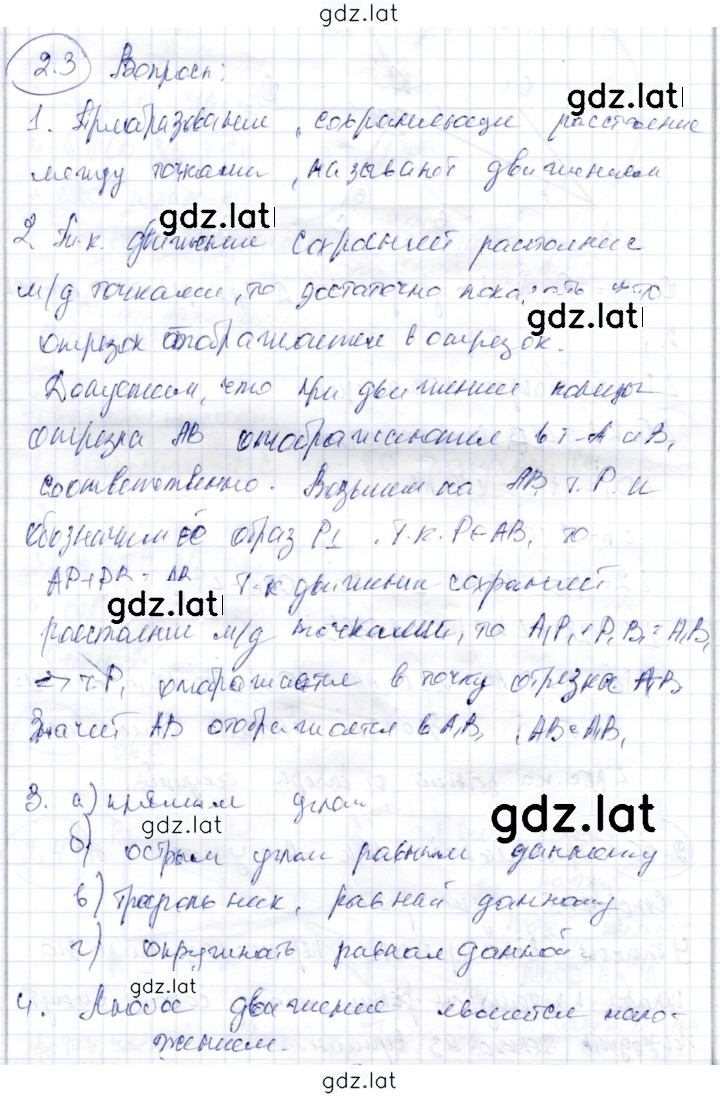 gdz.lat
2.3 Вопросы:
gdz.lat
1. Преобразование, сохраняющее расстояние
между точками, называют движением
gdz.lat
2 Т.к. движение сохраняет расстояние
м/д точками, то достаточно показать что
gdz.lat
отрезок отображается в отрезок.
Допустим, что при движении концы
отрезка AB отображаются в т-A и B₁
соответственно. Возьмем на AB, т. P и
обозначим её образ P1. Т.к. P∈AB, то
AP+PB = AB Т-к движение сохраняет
gdz.lat
расстояние м/д точками, то A₁P₁+P₁B₁=A₁B₁
=> т.P₁ отображается в точку отрезка A₁B₁
Значит AB отображается в A₁B₁, AB=A₁B₁
3. а) прямым углом
gdz.lat
gdz.lat
б) острым углом равным данному
в) треугольник, равный данному
г) окружность равная данной
gdz.lat
4. Любое движение является нало-
жением.
gdz.lat